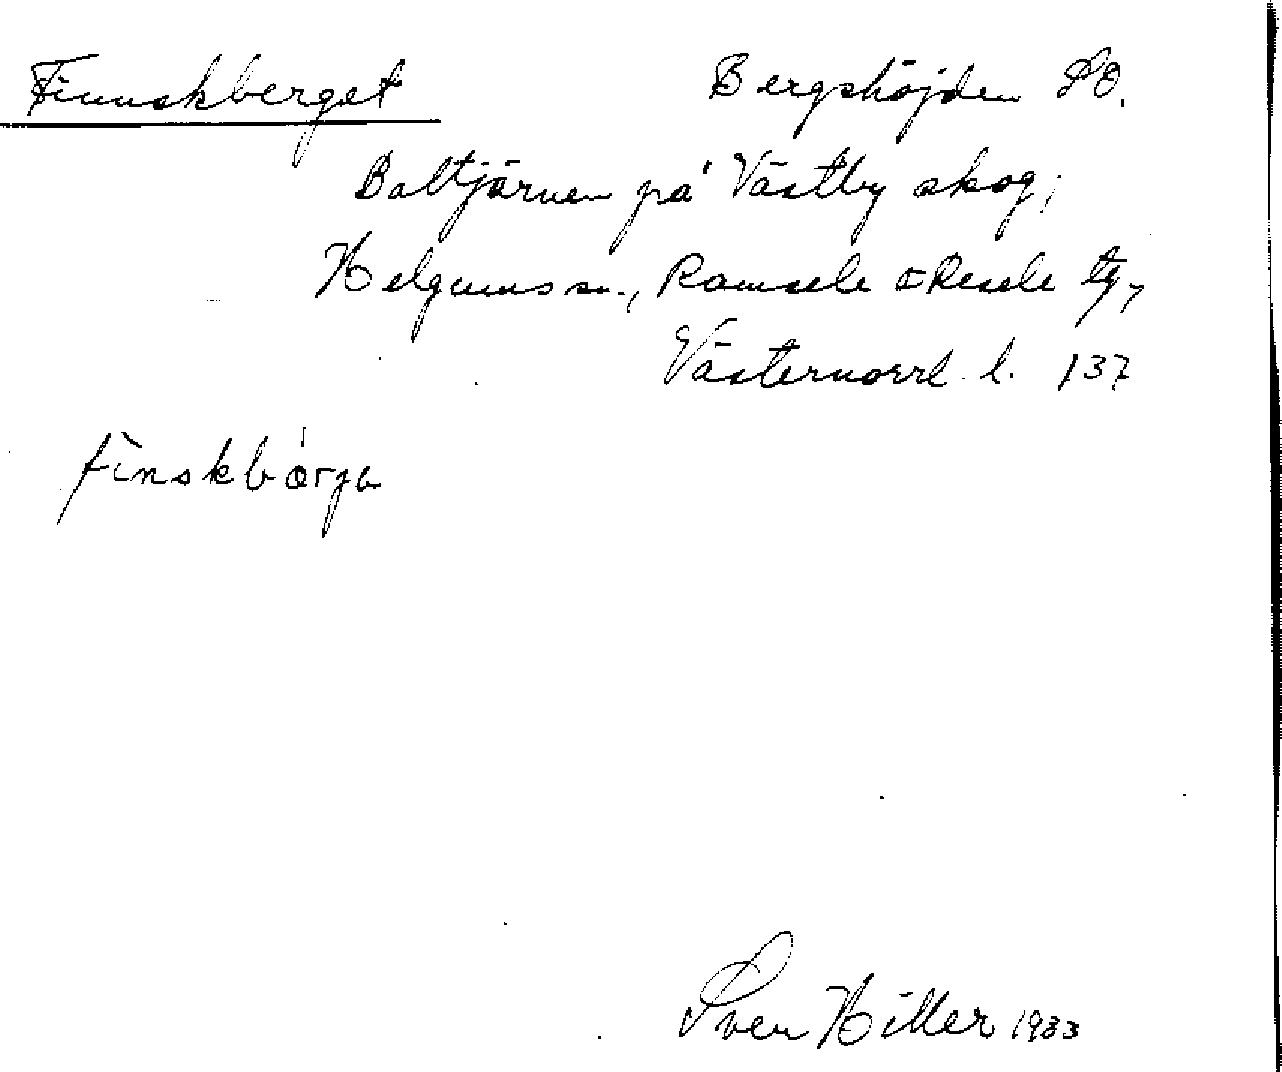 Finnskberget Bergshöjden SO.
Baltjärnen på Västby skog;
Helgums sn., Ramsele o Resele tg,
Västernorrl. l. 137
finskbärja
Sven Hiller 1933